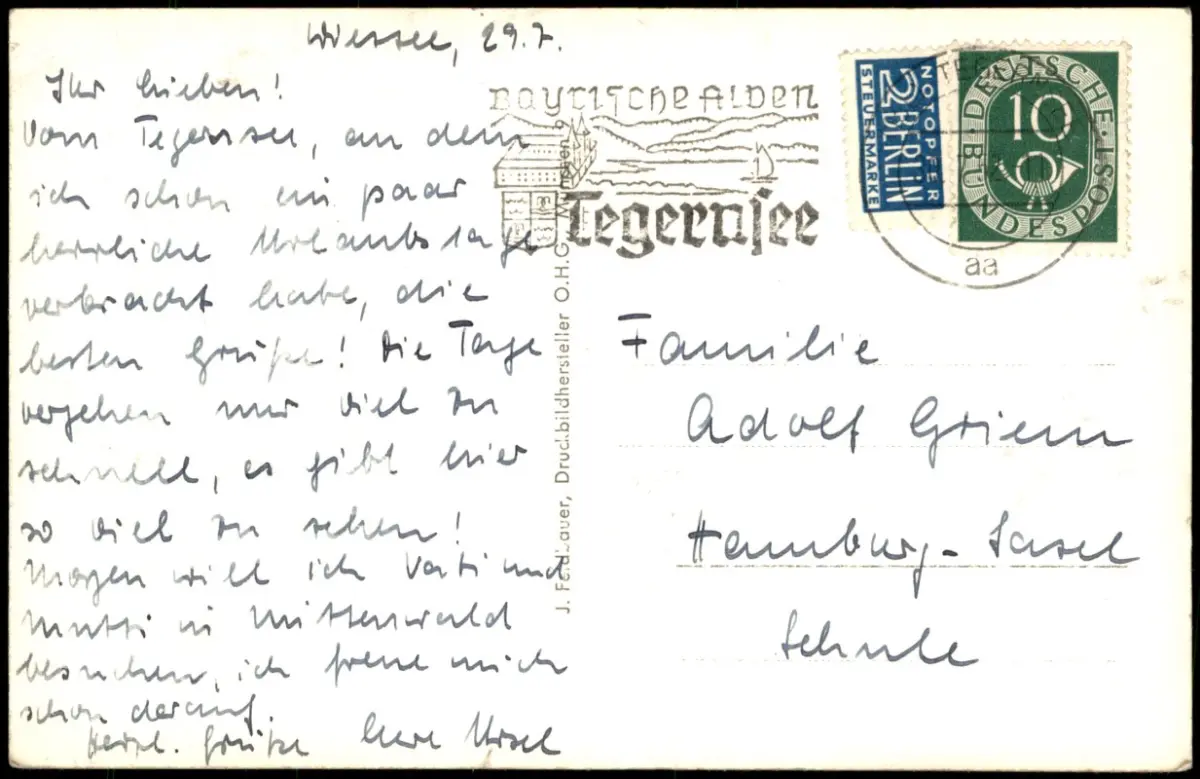 Wiessee, 29.7.
Ihr Lieben!
Vom Tegernsee, an dem
ich schon ein paar
herrliche Urlaubstage
verbracht habe, die
besten Grüße! Die Tage
vergehen nur viel zu
schnell, es gibt hier
so viel zu sehen!
Morgen will ich Vati und
Mutti in Mittenwald
besuchen, ich freue mich
schon darauf.
Herzl. Grüße Eure Ursel
Bayrische Alpen
Tegernsee
NOTOPFER
2 BERLIN
STEUERMARKE
DEUTSCHE BUNDESPOST
10
aa
J. Feldbauer, Druck.bildhersteller O.H.G. München 9
Familie
Adolf Griem
Hamburg-Sasel
Schule